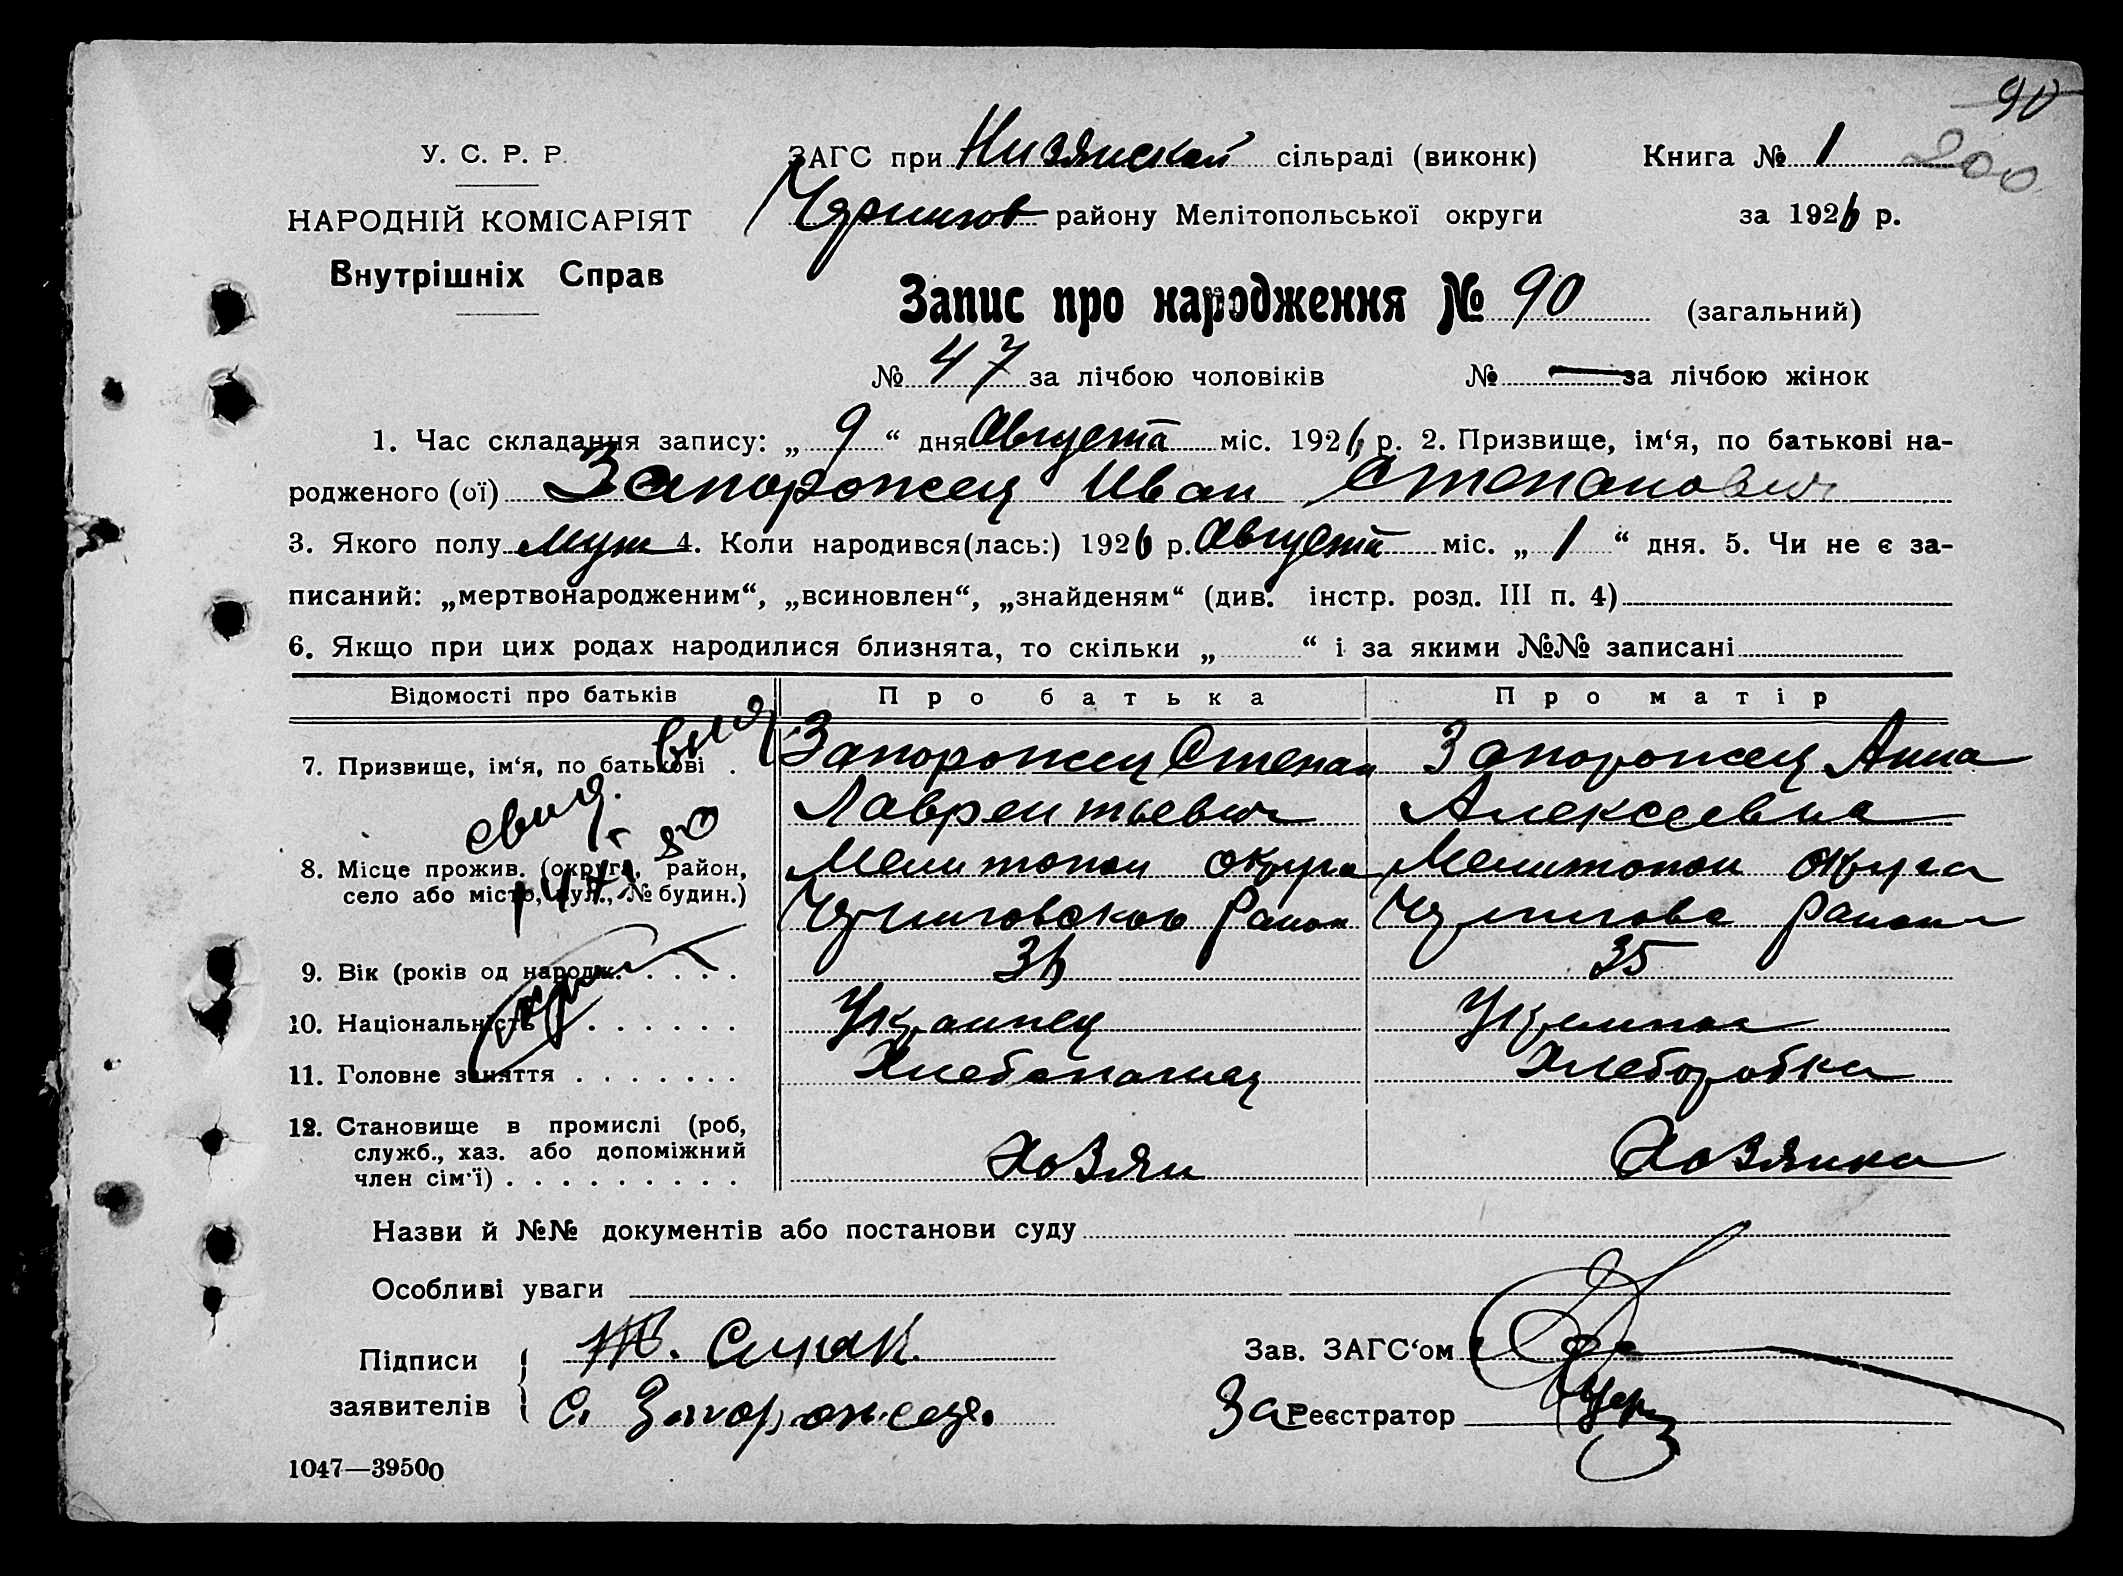 90
200
У. С. Р. Р.
НАРОДНІЙ КОМІСАРІЯТ
Внутрішніх Справ
ЗАГС при Низянской сільраді (виконк) Книга № 1
Чернигов району Мелітопольської округи за 1926 р.
Запис про народження № 90 (загальний)
№ 47 за лічбою чоловіків № — за лічбою жінок
1. Час складання запису: „ 9 “ дня Августа міс. 1926 р. 2. Призвище, ім‘я, по батькові на-
родженого (ої) Запорожец Иван Степанович
3. Якого полу муж 4. Коли народився(лась:) 1926 р. Августа міс. „ 1 “ дня. 5. Чи не є за-
писаний: „мертвонародженим“, „всиновлен“, „знайденям“ (див. інстр. розд. III п. 4)
6. Якщо при цих родах народилися близнята, то скільки „ “ і за якими №№ записані
Відомості про батьків Про батька Про матір
7. Призвище, ім‘я, по батькові . Запорожец Степан Запорожец Анна
Лаврентьевич Алексеевна
выд
свид.
8. Місце прожив. (округа, район, Мелитопол округа Мелитопол округа
село або місто, вул., № будин.)
9. Вік (років од народж. 36 35
10. Національність Украинец Украинка
11. Головне заняття Хлебопашец Хлеборобка
12. Становище в промислі (роб,
служб., хаз. або допоміжний
член сім‘ї) Хозяин Хозяика
Назви й №№ документів або постанови суду
Особливі уваги
Підписи
заявителів
С. Запорожец.
Зав. ЗАГС‘ом
За Реєстратор
1047—39500